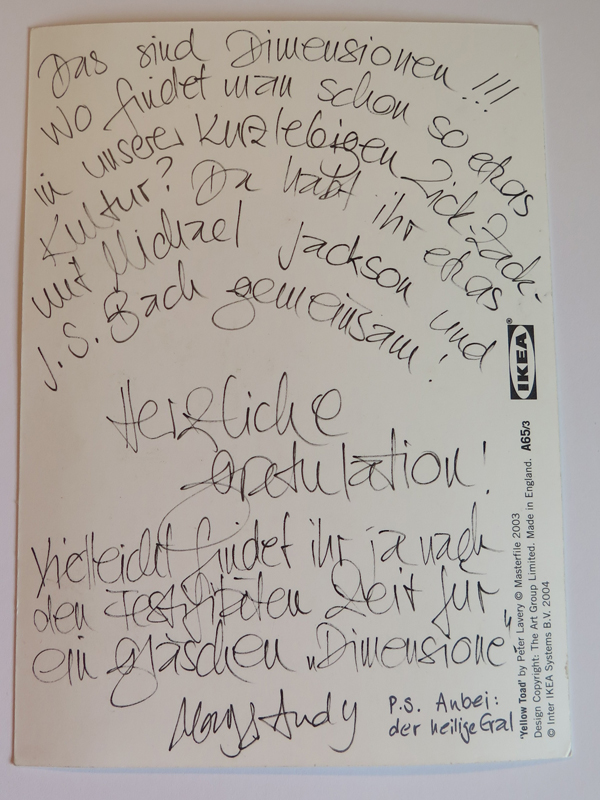 Das sind Dimensionen!!!
Wo findet man schon so etwas
in unserer kurzlebigen Zick-Zack-
Kultur? Da habt ihr etwas
mit Michael Jackson und
J. S. Bach gemeinsam!
Herzliche
Gratulation!
Vielleicht findet ihr ja nach
den Festifitäten Zeit für
ein Gläschen „Dimensione"
Andy
P.S. Anbei:
der heilige Gral
IKEA®
A65/3
'Yellow Toad' by Peter Lavery © Masterfile 2003
Design Copyright: The Art Group Limited. Made in England.
© Inter IKEA Systems B.V. 2004